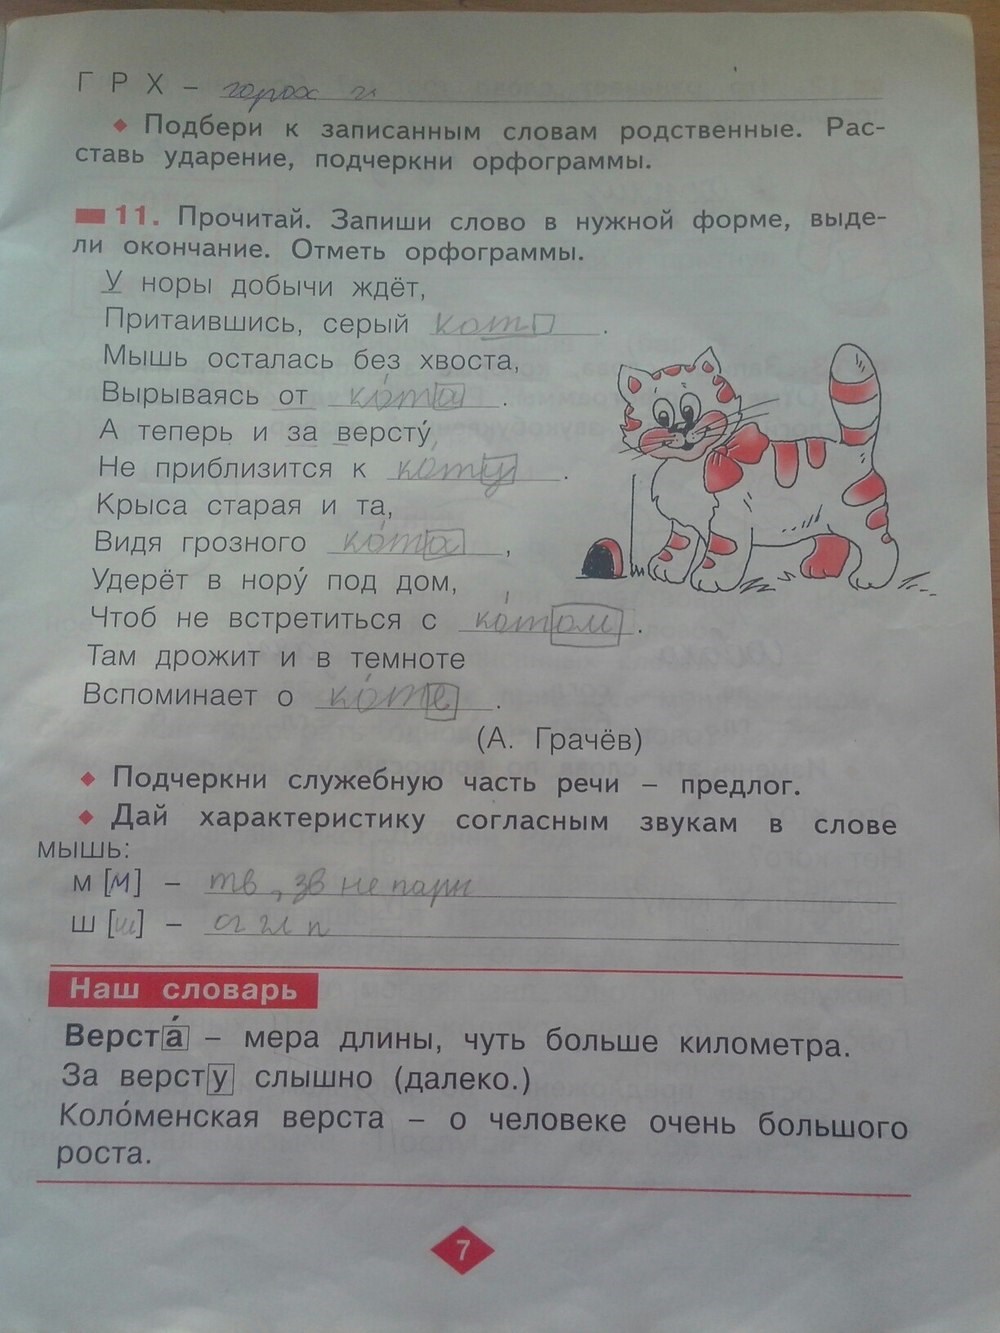 Г Р Х – горох г
◆ Подбери к записанным словам родственные. Рас-
ставь ударение, подчеркни орфограммы.
11. Прочитай. Запиши слово в нужной форме, выде-
ли окончание. Отметь орфограммы.
У норы добычи ждёт,
Притаившись, серый кот.
Мышь осталась без хвоста,
Вырываясь от ко́та.
А теперь и за версту́,
Не приблизится к ко́ту.
Крыса старая и та,
Видя грозного ко́та,
Удерёт в нору́ под дом,
Чтоб не встретиться с ко́том.
Там дрожит и в темноте
Вспоминает о ко́те.
(А. Грачёв)
◆ Подчеркни служебную часть речи – предлог.
◆ Дай характеристику согласным звукам в слове
мышь:
м [м] – тв, зв не парн
ш [ш] – сг гл п
Наш словарь
Верста́ – мера длины, чуть больше километра.
За версту слышно (далеко.)
Коло́менская верста – о человеке очень большого
роста.
7